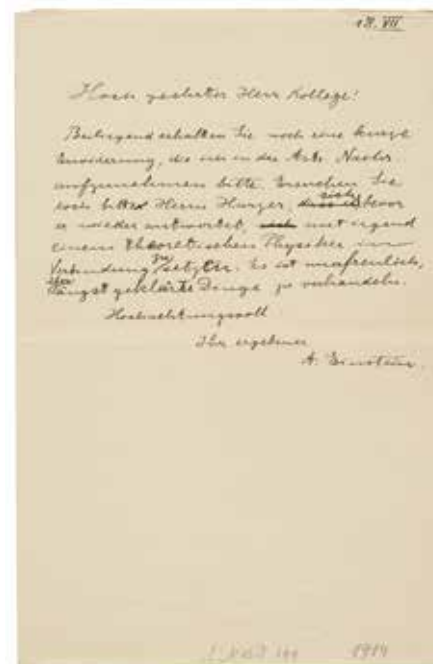 18. VII
Hoch geehrter Herr Kollege!
Beiliegend erhalten Sie noch eine kurze
Erwiderung, die in der Astr. Nachr.
aufzunehmen bitte. Ersuchen Sie
doch bitte Herrn Harzer, sich bevor
er wieder antwortet, mit irgend
einem theoretischen Physiker in
Verbindung zu setzen. Es ist unerfreulich,
längst geklärte Dinge zu verhandeln.
Hochachtungsvoll
Ihr ergebener
A. Einstein.
1914